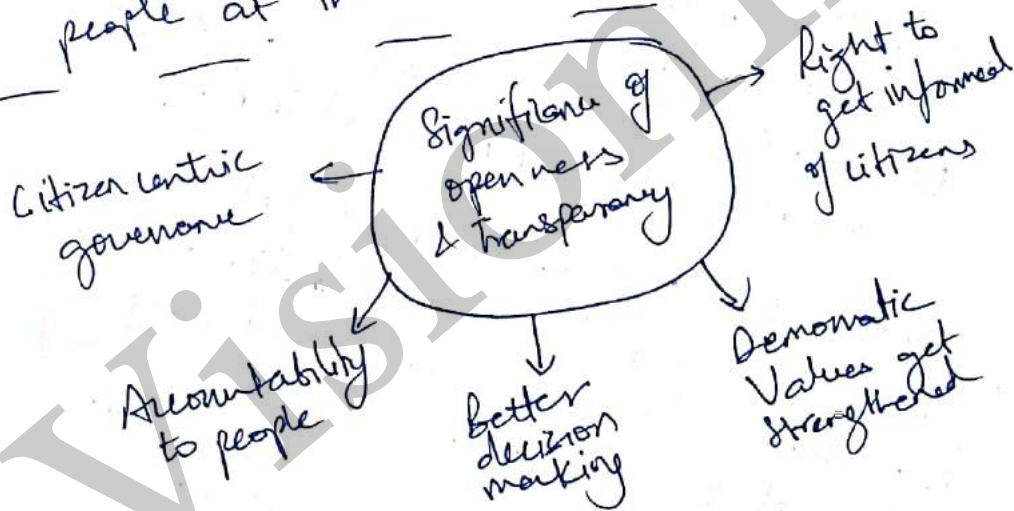 people at
Significance of
openness
& Transparency
Right to
get informed
of citizens
Citizen centric
governance
Accountability
to people
Better
decision
making
Democratic
Values get
strengthened
Vision